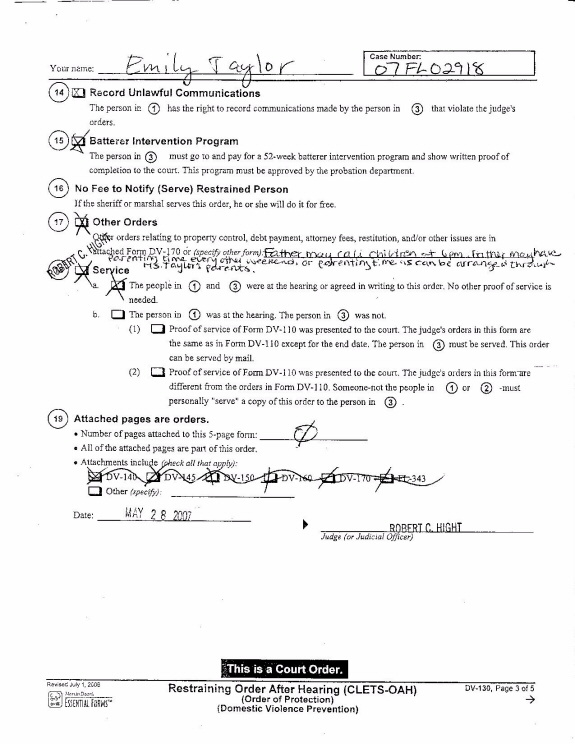 Your name: Emily Taylor
Case Number:
07FL02918
14 Record Unlawful Communications
The person in 1 has the right to record communications made by the person in 3 that violate the judge's
orders.
15 Batterer Intervention Program
The person in 3 must go to and pay for a 52-week batterer intervention program and show written proof of
completion to the court. This program must be approved by the probation department.
16 No Fee to Notify (Serve) Restrained Person
If the sheriff or marshal serves this order, he or she will do it for free.
17 Other Orders
Other orders relating to property control, debt payment, attorney fees, restitution, and/or other issues are in
attached Form DV-170 or (specify other form): Father may call children at 6pm. Father may have
parenting time every other weekend. or parenting time as can be arranged through
Ms. Taylor's parents.
ROBERT C. HIGHT
Service
a. The people in 1 and 3 were at the hearing or agreed in writing to this order. No other proof of service is
needed.
b. The person in 1 was at the hearing. The person in 3 was not.
(1) Proof of service of Form DV-110 was presented to the court. The judge's orders in this form are
the same as in Form DV-110 except for the end date. The person in 3 must be served. This order
can be served by mail.
(2) Proof of service of Form DV-110 was presented to the court. The judge's orders in this form are
different from the orders in Form DV-110. Someone-not the people in 1 or 2 -must
personally "serve" a copy of this order to the person in 3 .
19 Attached pages are orders.
• Number of pages attached to this 5-page form:
• All of the attached pages are part of this order.
• Attachments include (check all that apply):
DV-140 DV-145 DV-150 DV-160 DV-170 FL-343
Other (specify):
Date: MAY 28 2007
ROBERT C. HIGHT
Judge (or Judicial Officer)
This is a Court Order.
Revised July 1, 2008
Martin Dean's
ESSENTIAL FORMS™
Restraining Order After Hearing (CLETS-OAH)
(Order of Protection)
(Domestic Violence Prevention)
DV-130, Page 3 of 5
→